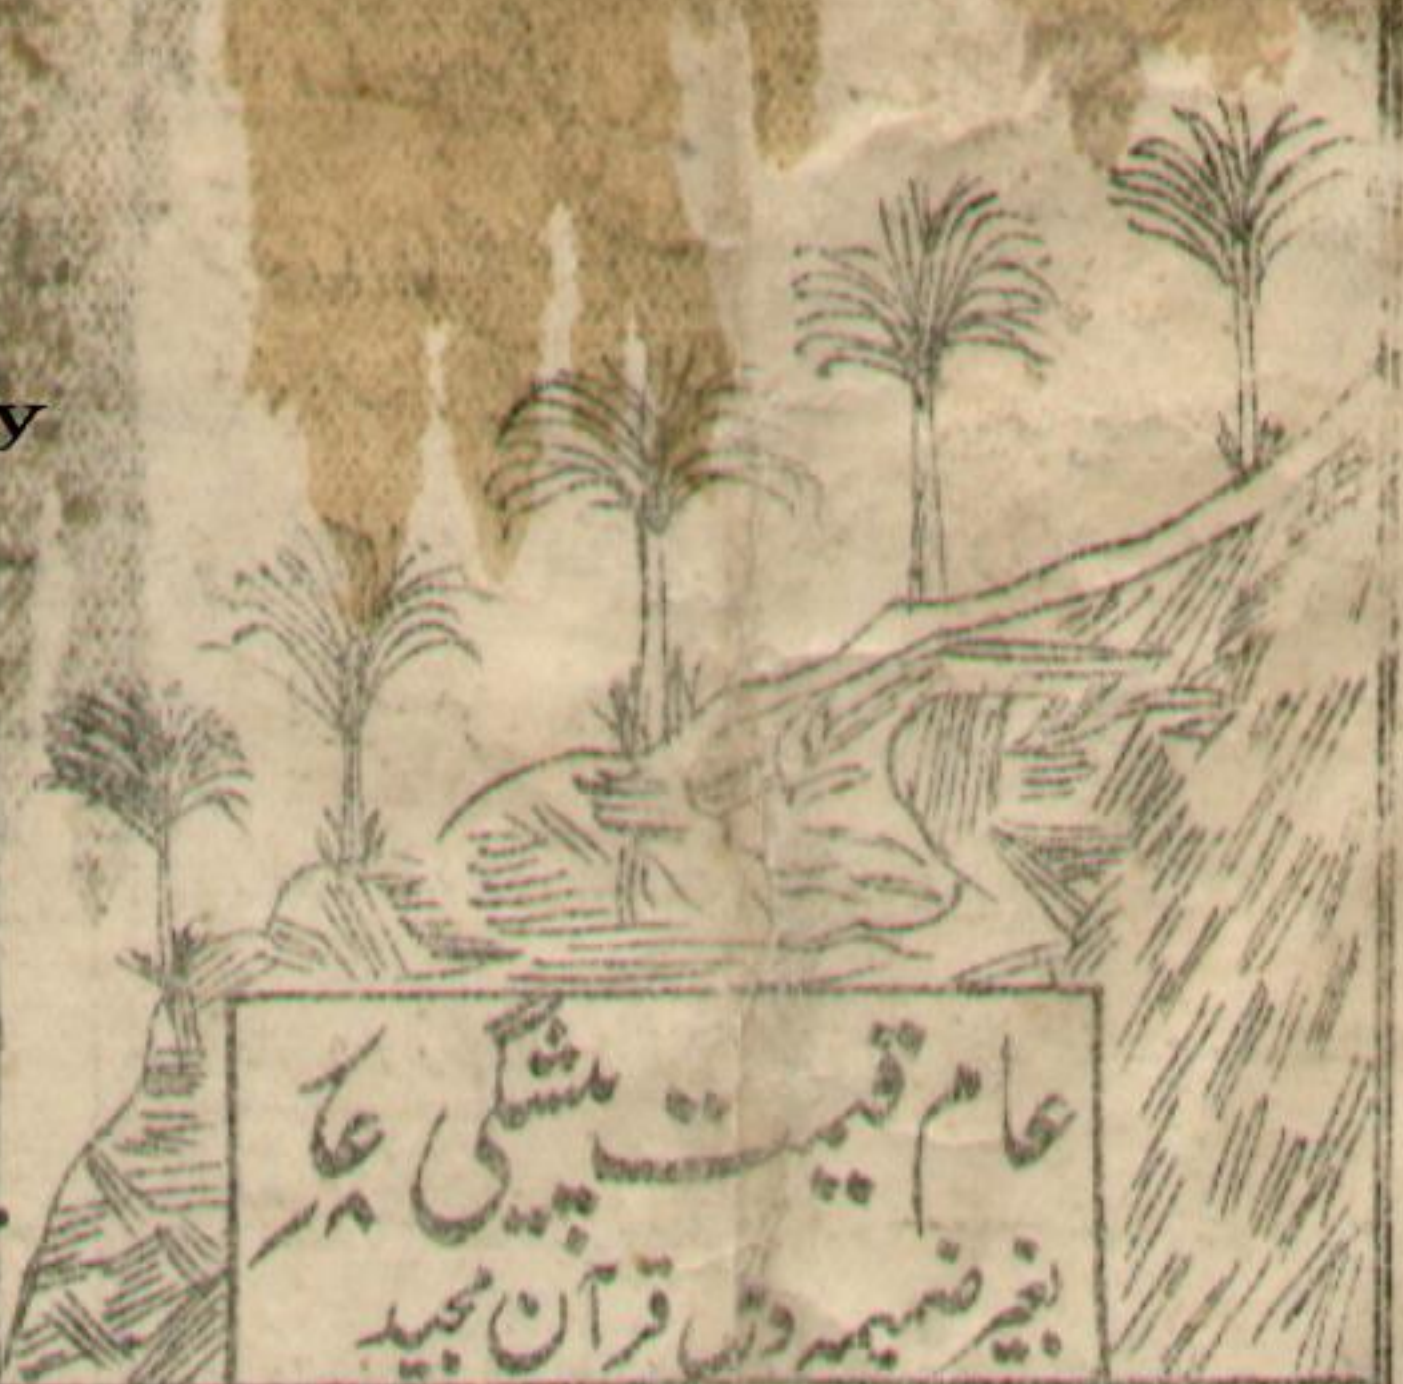 y
عام قیمت پیشگی
بغیر ضمیمہ درس قرآن مجید